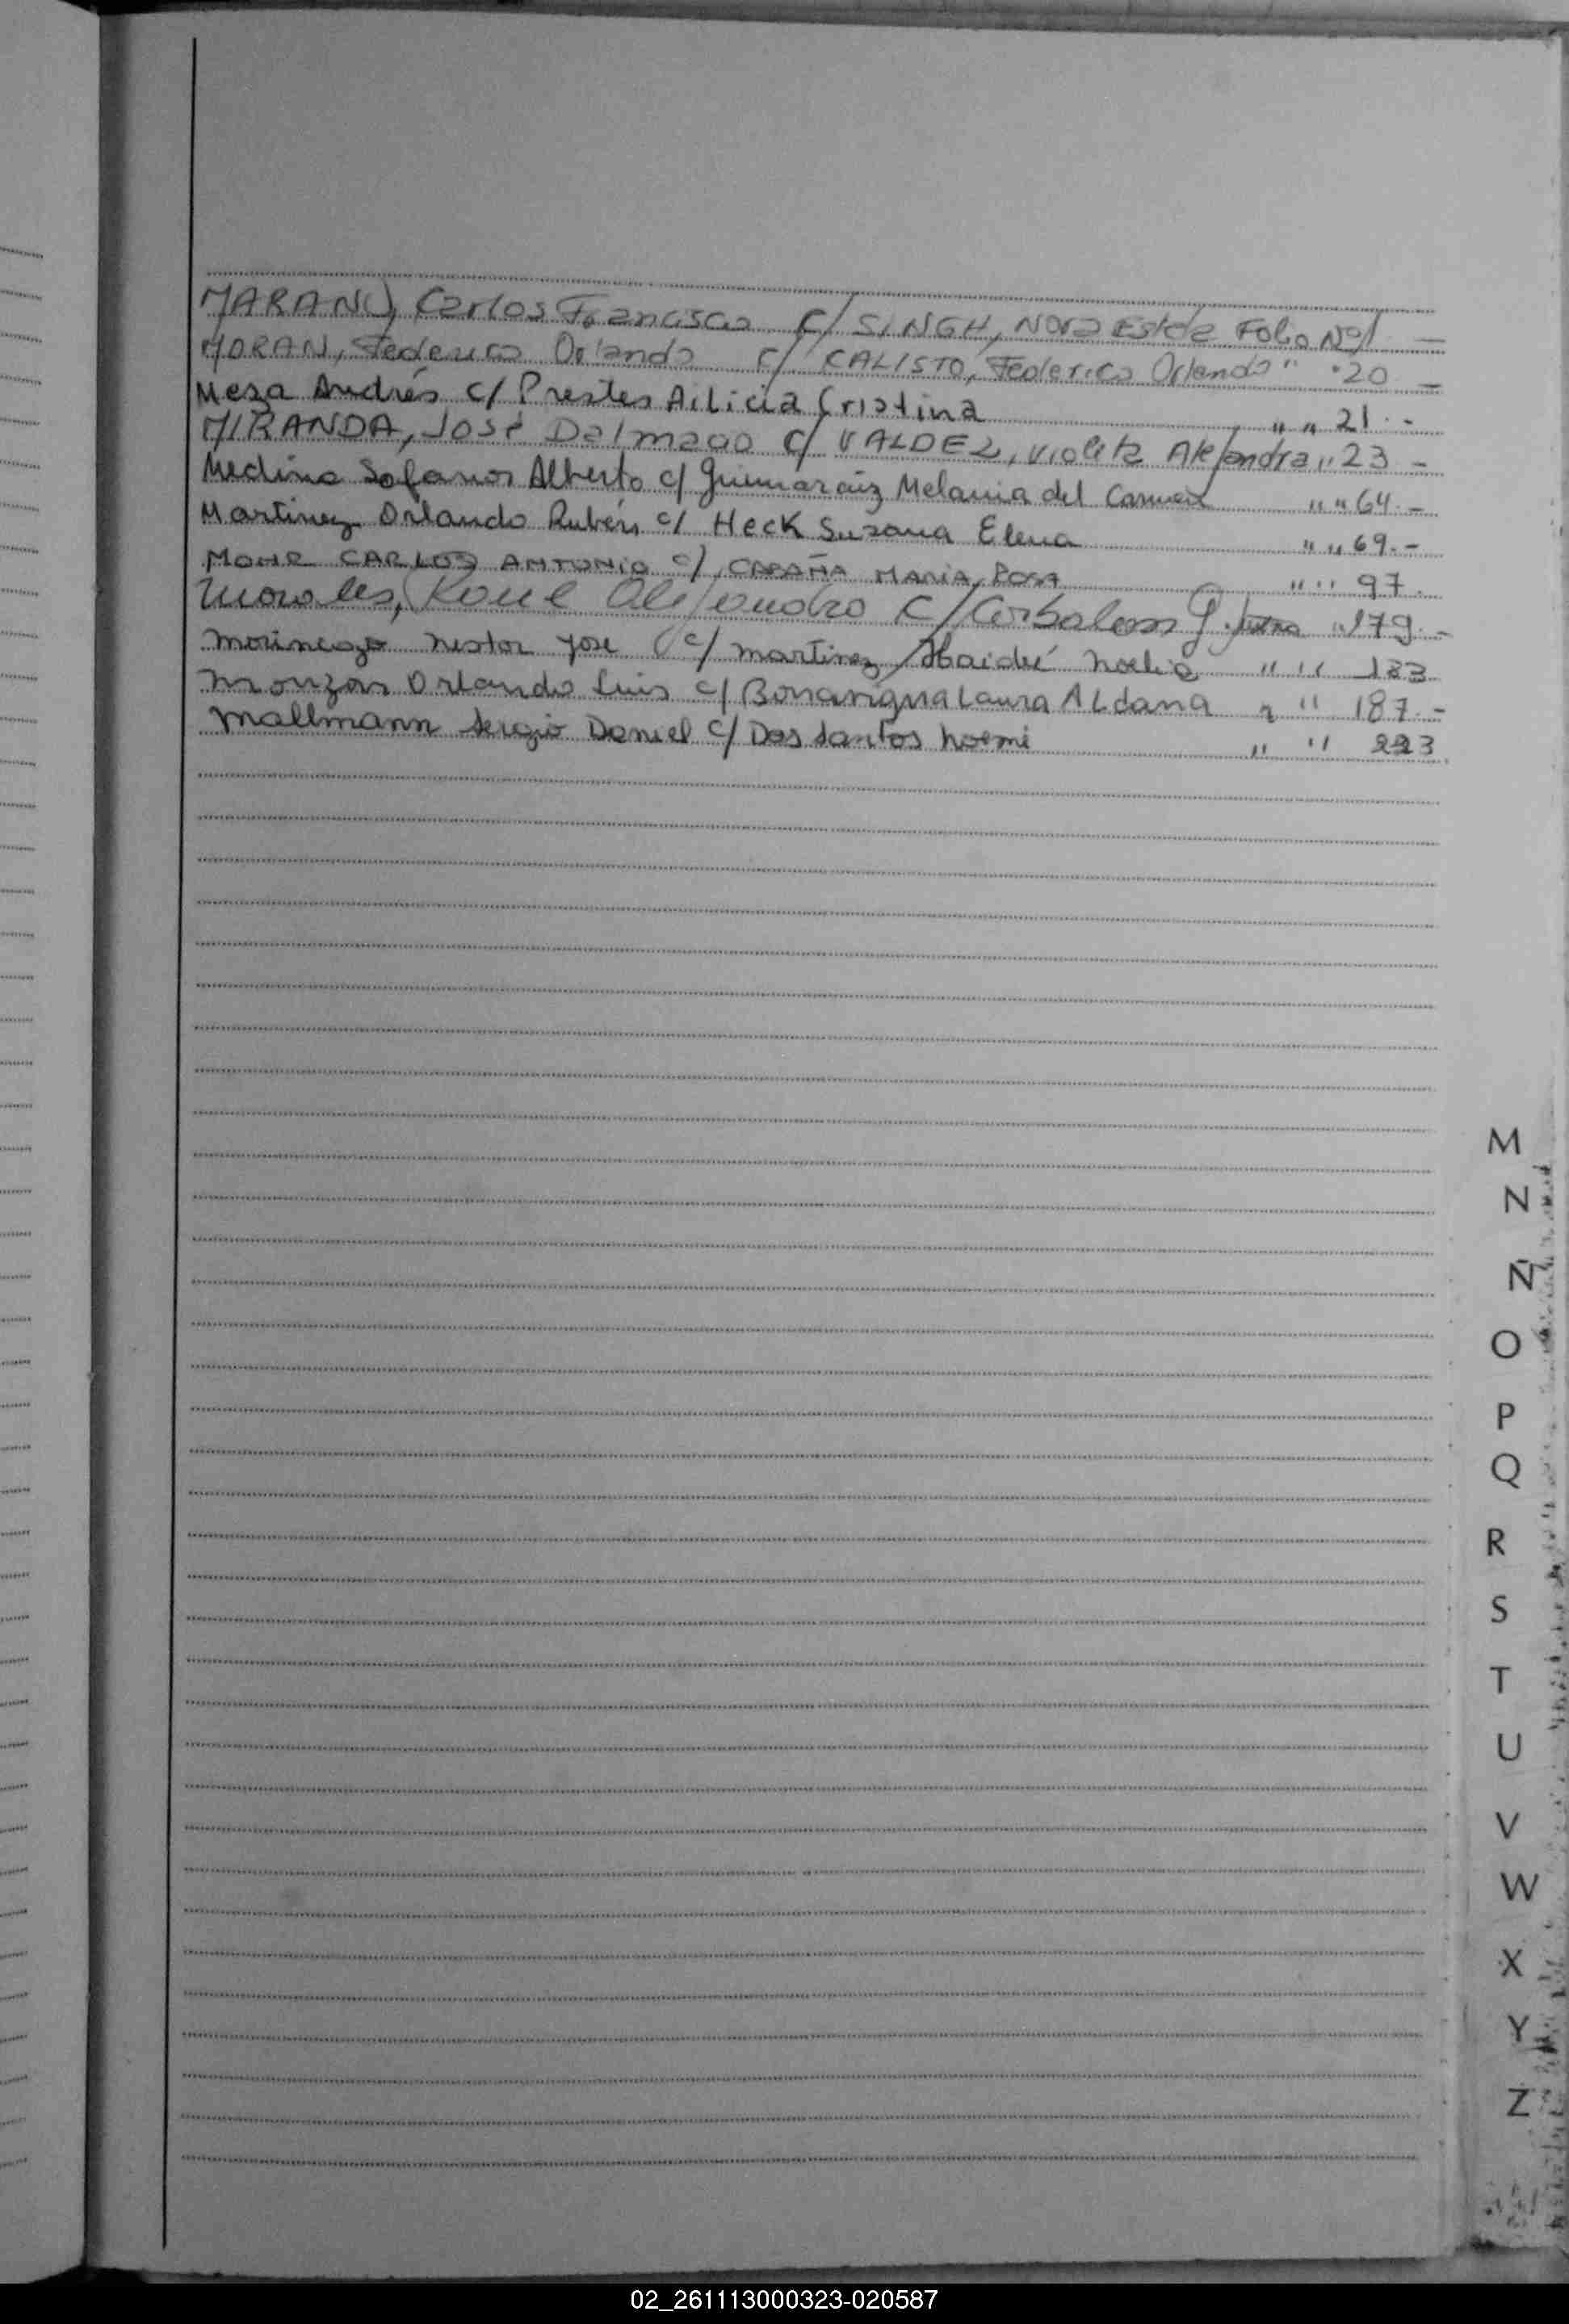 MARANO, Carlos Francisco c/ SINGH, Nora Estela Folio Nº 1 —
MORAN, Federico Orlando c/ CALISTO, Federica Orlando " " 20 —
Meza Andrés c/ Prestes Ailicia Cristina " " 21 -
MIRANDA, José Dalmago c/ VALDEZ, Violeta Alejandra " 23 -
Medina Alberto c/ Melania del Carmen " " 64 -
Martinez Orlando Rubén c/ Heck Susana Elena " " 69.-
MOHR CARLOS ANTONIO c/ CABAÑA MARIA ROSA " " 97.
Morales, Alejandro c/ " 179.-
nestor Jose c/ martinez Haideé noelia " " 183
Monzon Orlando Luis c/ Laura ALdana " " 187.-
Mallmann Sergio Daniel c/ Dos Santos noemi " " 223
M
N
Ñ
O
P
Q
R
S
T
U
V
W
X
Y
Z
02_261113000323-020587